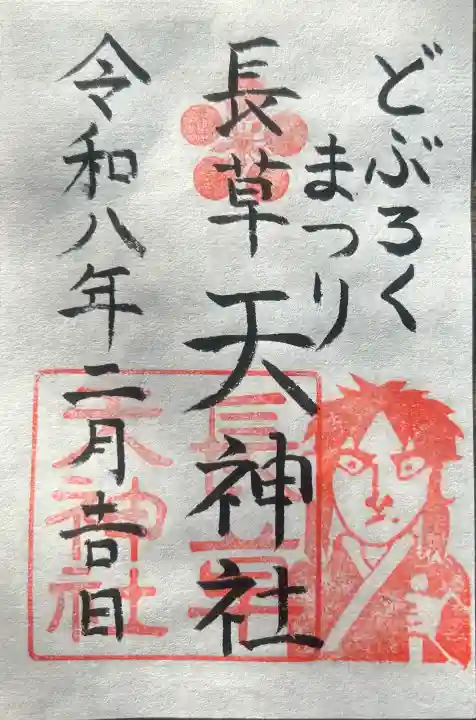 どぶろく
まつり
長草天神社
令和八年二月吉日
長草
天神社